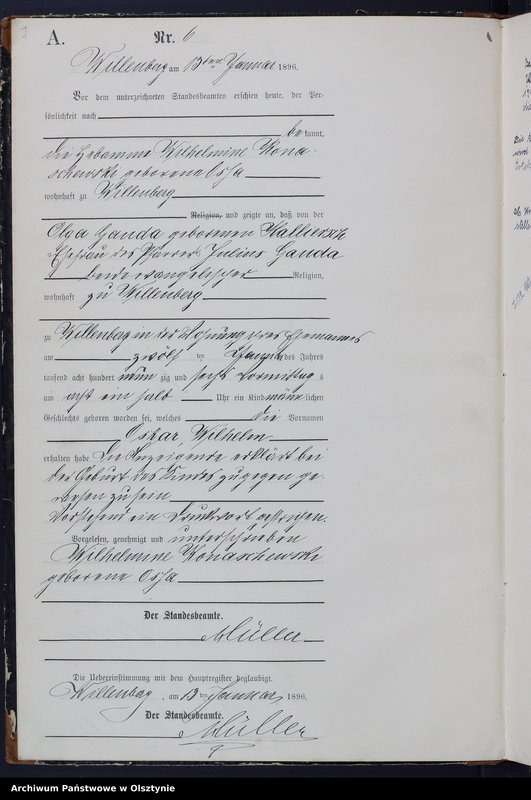 A.
Nr. 6
Willenberg am 13ten Januar 1896.
Vor dem unterzeichneten Standesbeamten erschien heute, der Per-
sönlichkeit nach
bekannt,
die Hebamme Wilhelmine Kona-
schewski geborene Ossa
wohnhaft zu Willenberg
Religion, und zeigte an, daß von der
Olga Ganda geborenen
Ehefrau des Pfarrers Julius Ganda
beide evangelischer Religion,
wohnhaft zu Willenberg
zu Willenberg in der Wohnung ihres Ehemannes
am zwölften Januar des Jahres
tausend acht hundert neunzig und sechs Vormittags
um acht ein halb Uhr ein Kind männlichen
Geschlechts geboren worden sei, welches die Vornamen
Oskar, Wilhelm
erhalten habe Die Anzeigende erklärt bei
der Geburt des Kindes zugegen ge-
wesen zu sein
Vorstehend ein Druckwort gestrichen.
Vorgelesen, genehmigt und unterschrieben
Wilhelmine Konaschewski
geborene Ossa
Der Standesbeamte.
Müller
Die Uebereinstimmung mit dem Hauptregister beglaubigt.
Willenberg, am 13ten Januar 1896.
Der Standesbeamte.
Müller
Archiwum Państwowe w Olsztynie